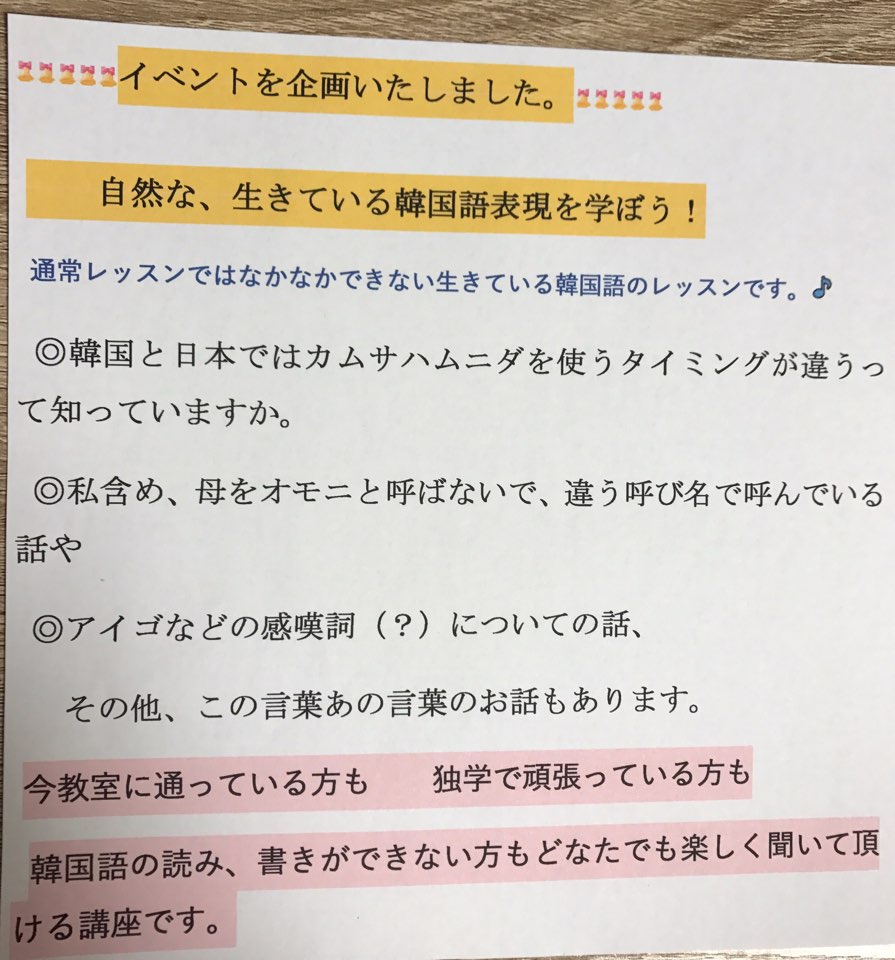 イベントを企画いたしました。
自然な、生きている韓国語表現を学ぼう！
通常レッスンではなかなかできない生きている韓国語のレッスンです。🎵
◎韓国と日本ではカムサハムニダを使うタイミングが違うっ
て知っていますか。
◎私含め、母をオモニと呼ばないで、違う呼び名で呼んでいる
話や
◎アイゴなどの感嘆詞（？）についての話、
その他、この言葉あの言葉のお話もあります。
今教室に通っている方も　　独学で頑張っている方も
韓国語の読み、書きができない方もどなたでも楽しく聞いて頂
ける講座です。